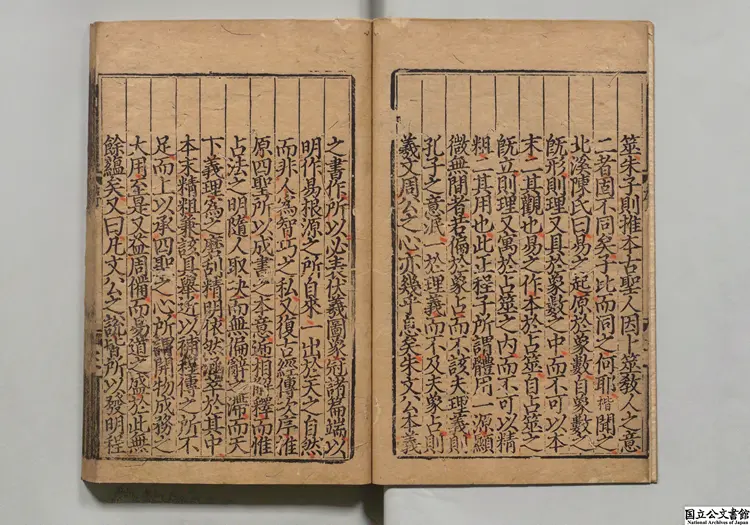 筮朱子則推本古聖人因卜筮教人之意
二者固不同矣子比而同之何耶楷聞之
北溪陳氏曰易之起原於象數自象數之
旣形則理又具於象數之中而不可以本
末二其觀也易之作本於占筮自占筮之
旣立則理又寓於占筮之内而不可以精
粗二其用也此正程子所謂體用一源顯
微無間者若偏於象占而不該夫理義則
孔子之意泯一於理義而不及夫象占則
羲文周公之心亦幾乎息矣朱文公本義
之書作所以必表伏羲圖象冠諸篇端以
明作易根源之所自來一出於天之自然
而非人爲智巧之私又復古經傳次序推
原四聖所以成書之本意遞相解釋而惟
占法之明隨人取决而無偏辭之滯而天
下義理爲之磨刮精明依然涵萃於其中
本末精粗兼該具舉近以補程傳之所不
足而上以承四聖之心所謂開物成務之
大用至是又益周備而易道之盛於此無
餘蘊矣又曰凡文公之說皆所以發明程
国立公文書館
National Archives of Japan